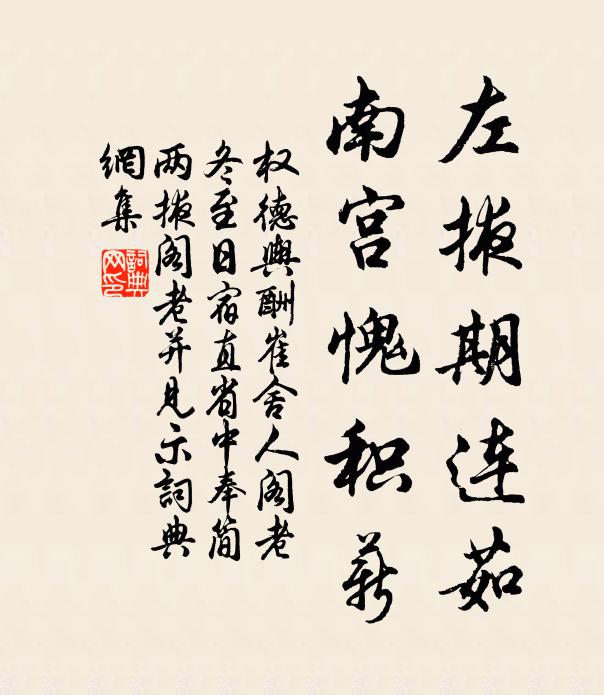 左掖期连茹
南宫愧积薪
权德舆酬崔舍人阁老
冬至日宿直省中奉简
两掖阁老并见示词典
網集
詞典
网印